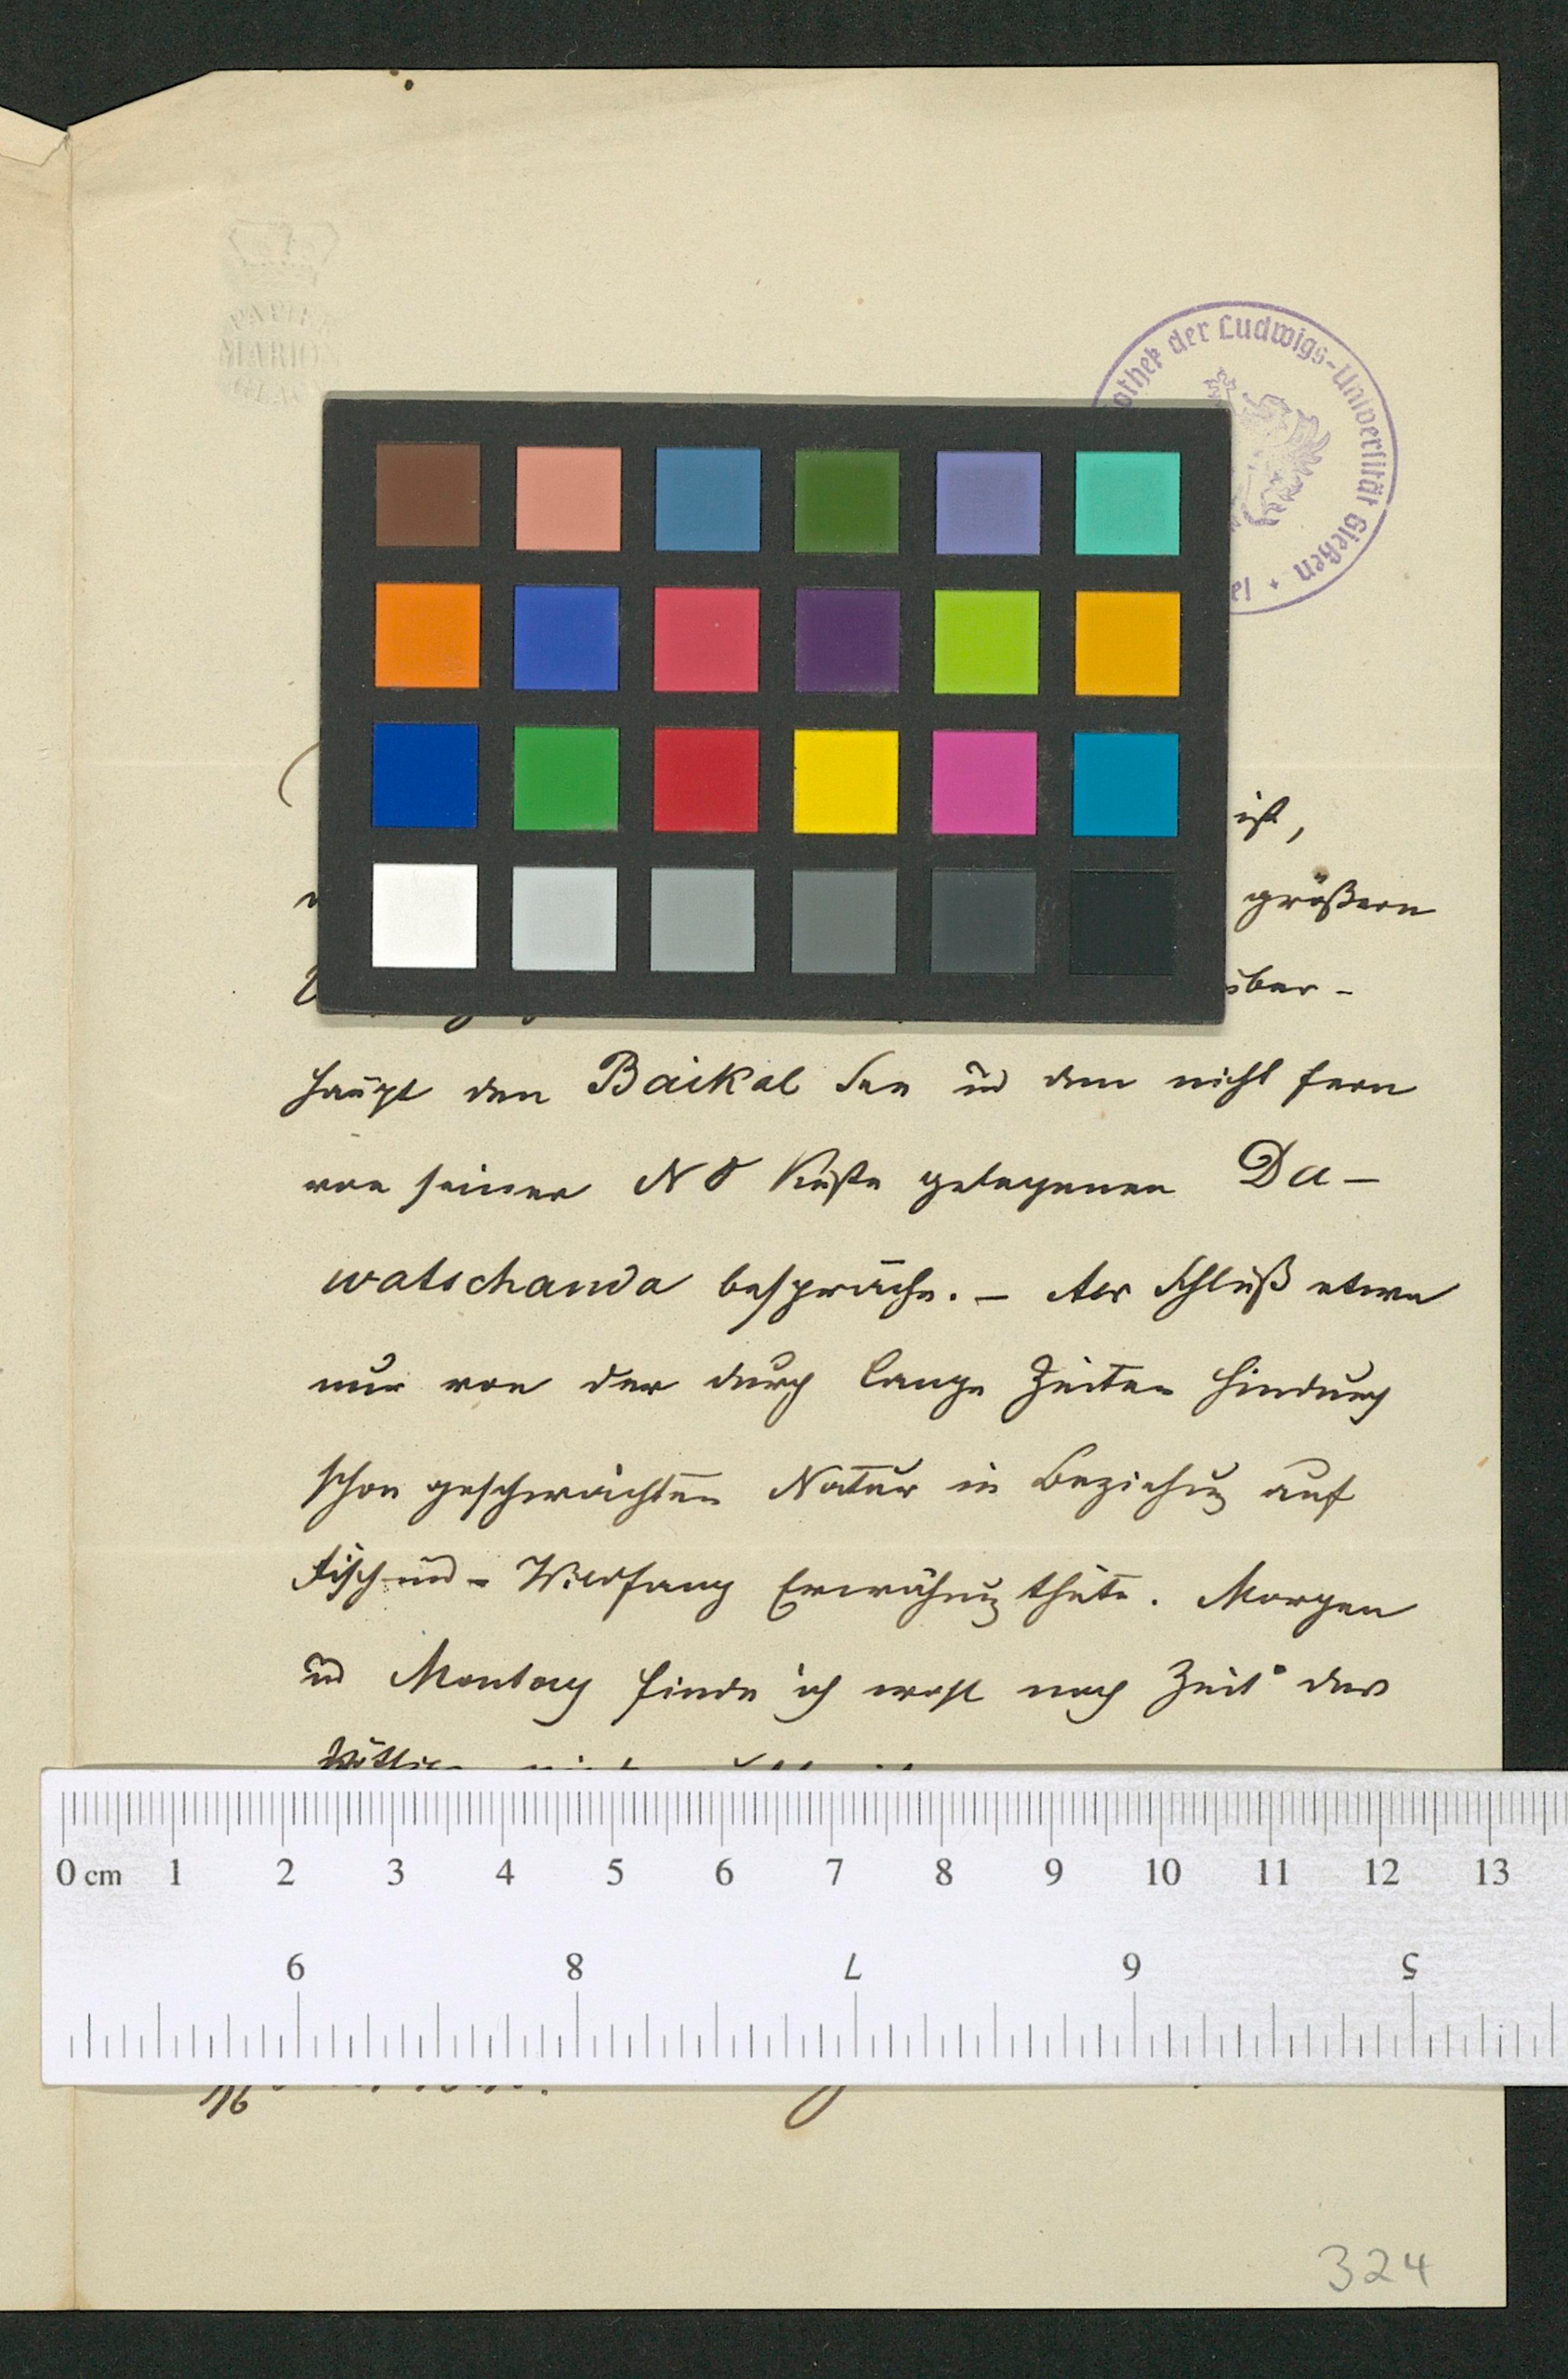 PAPIER
MARION
othek der Ludwigs-Universität Gießen *
ist,
größern
über-
haupt den Baikal See ūd den nicht fern
von seiner NO Küste gelegenen Da-
watschanda bespräche. – Der Schluß etwa
nur von der durch lange Zeiten hindurch
schon geschwächten Natur in Beziehung auf
Fisch- ūd - Wildfang Erwähnung thäte. Morgen
ūd Montag finde ich erst noch Zeit das
0 cm 1 2 3 4 5 6 7 8 9 10 11 12 13
9 8 7 6 5
324